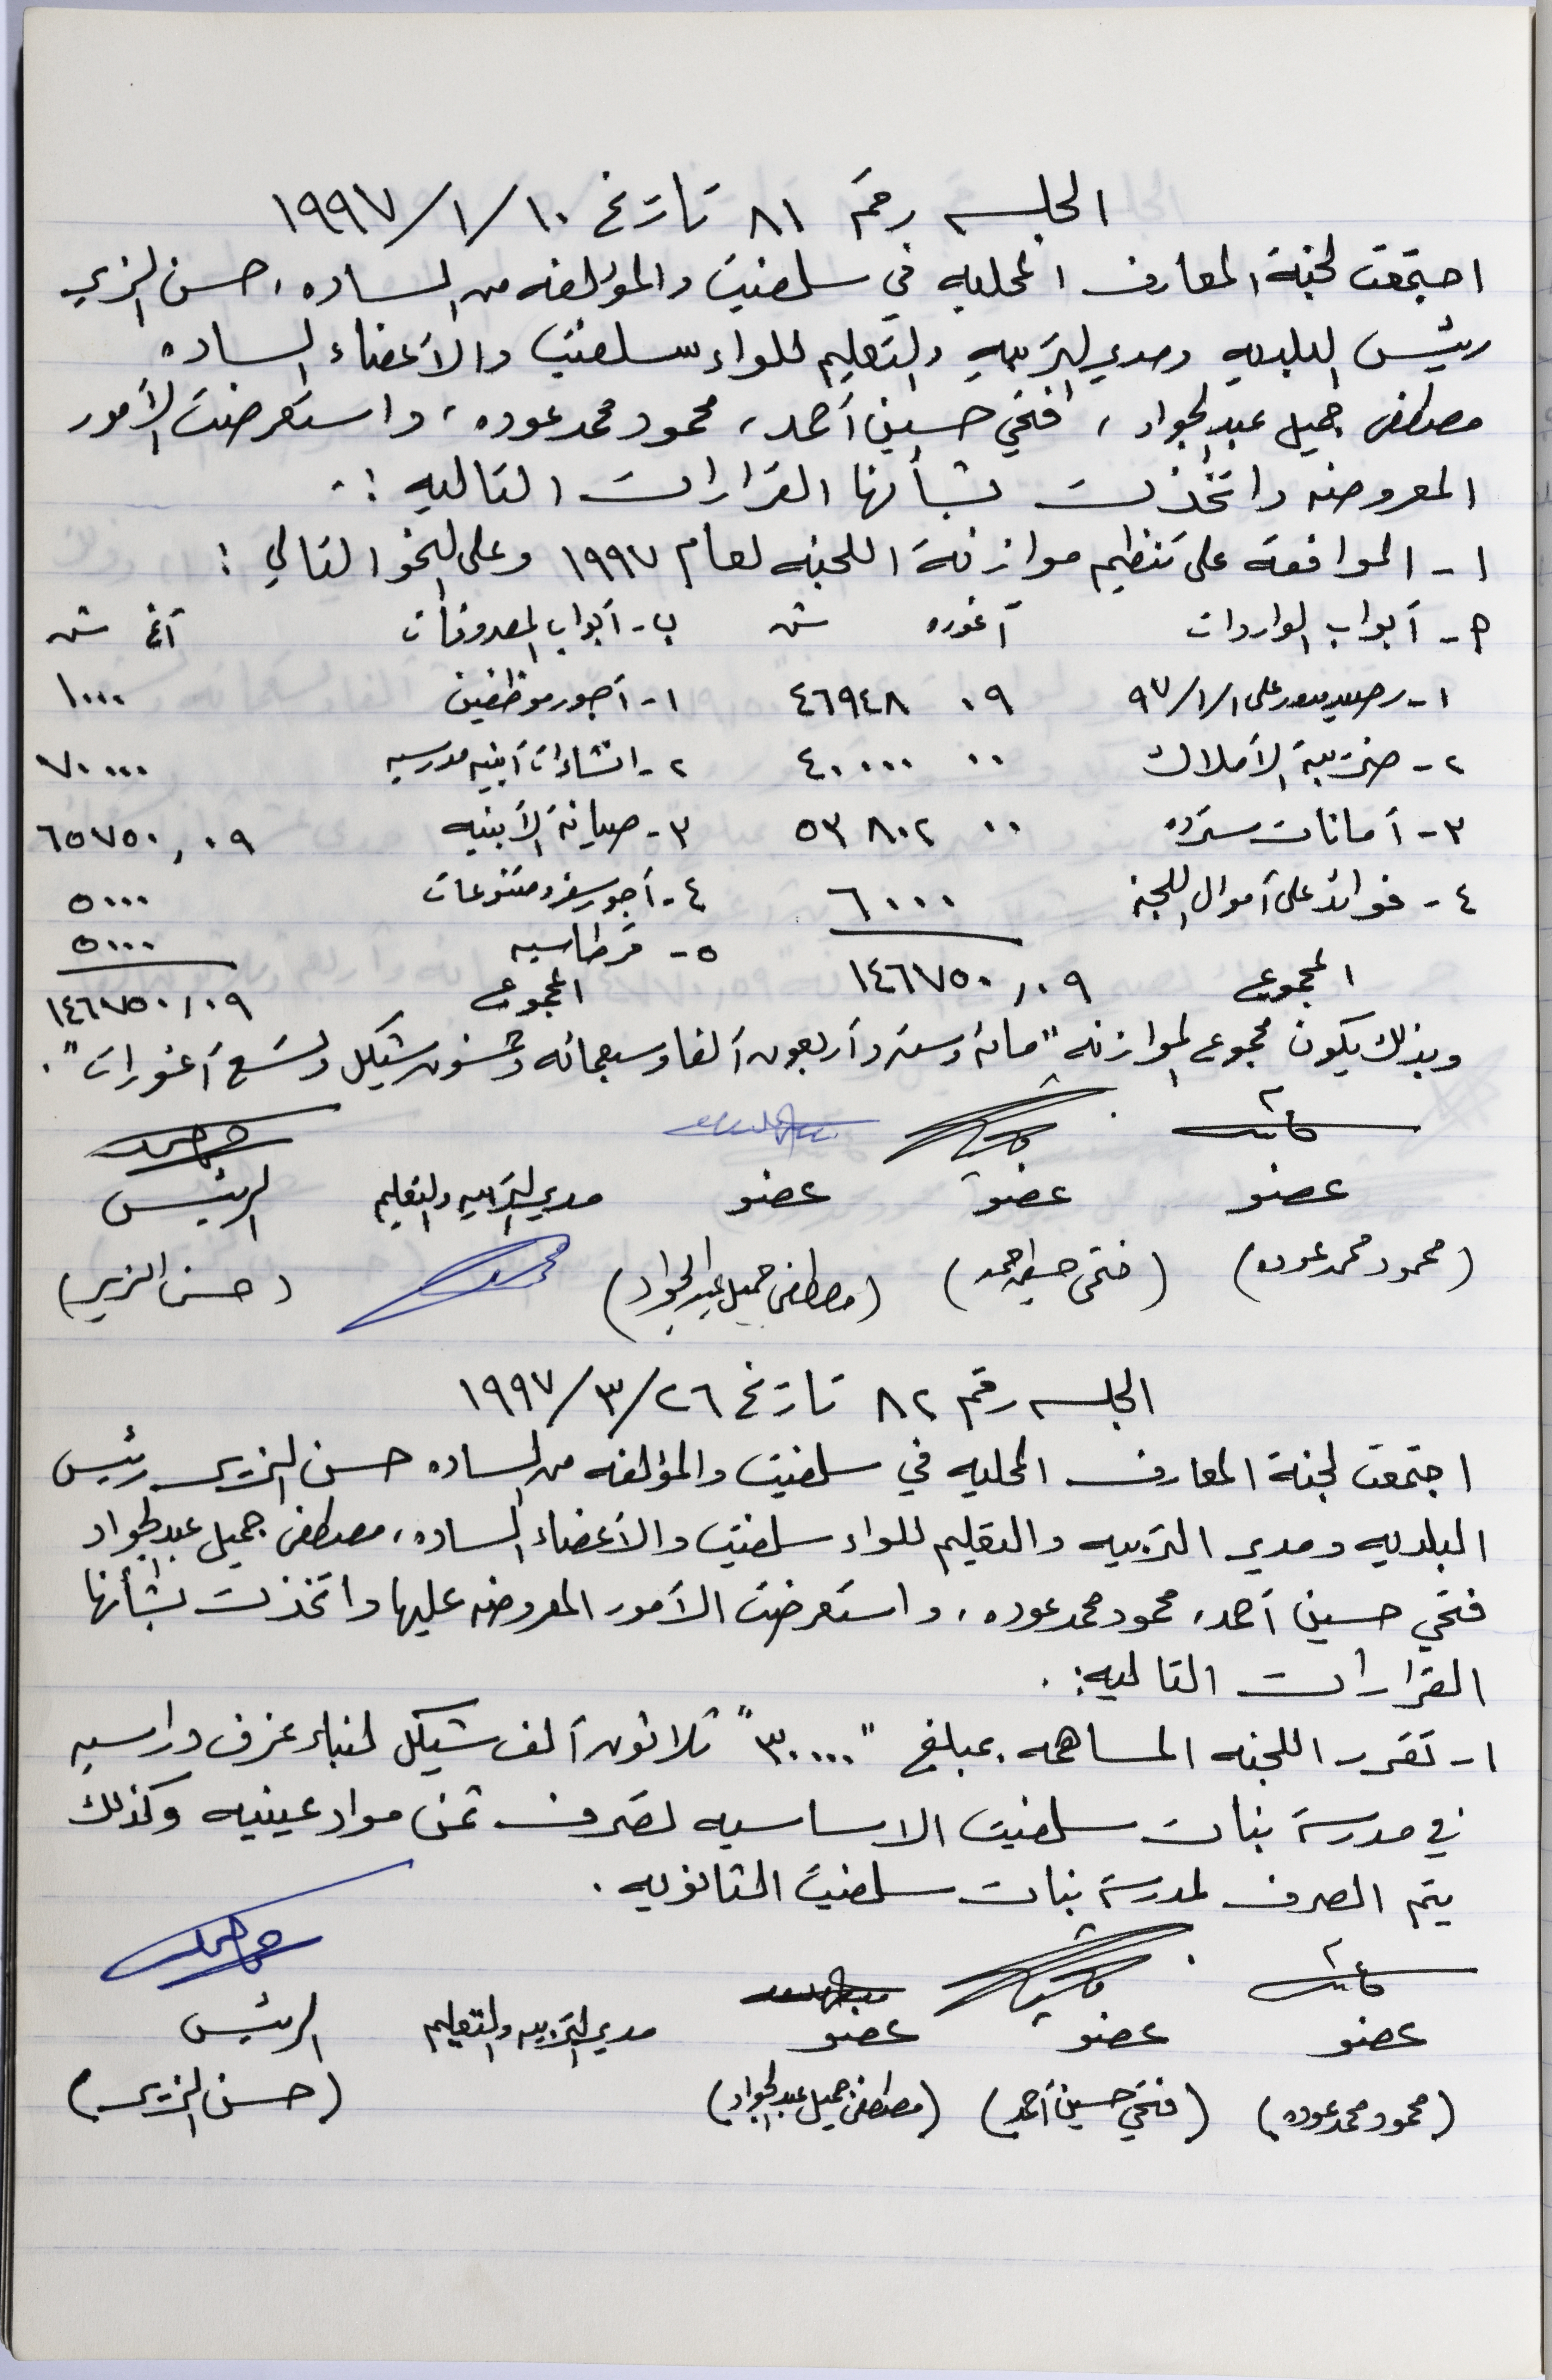 الجلسه رقم ٨١ تاريخ ١٠/١/١٩٩٧
اجتمعت لجنة المعارف المحليه في سلفيت والمؤلفه من الساده، حسن الزير
رئيس البلديه ومدير التربيه والتعليم للواء سلفيت والأعضاء الساده
مصطفى جميل عبد الجواد، فتحي حسين أحمد، محمود محمد عوده، واستعرضت الأمور
المعروضه واتخذت بشأنها القرارات التاليه :.
١- الموافقة على تنظيم موازنة اللجنه لعام ١٩٩٧ وعلى النحو التالي :
أ- أبواب الواردات آغوره ش ب- أبواب المصروفات آغ ش
١- رصيد مدور على ١/١/٩٧ ٠٩ ٤٦٩٤٨ ١- أجور موظفين ١٠٠٠
٢- ضريبة الأملاك ٠٠ ٤٠٠٠٠ ٢- انشاءات أبنيه مدرسيه ٧٠٠٠٠
٣- أمانات مسترده ٠٠ ٥٣٨٠٢ ٣- صيانة الأبنيه ٦٥٧٥٠,٠٩
٤- فوائد على أموال اللجنه ٦٠٠٠ ٤- أجور سفر ومتنوعات ٥٠٠٠
٥- قرطاسيه ٥٠٠٠
المجموع ١٤٦٧٥٠,٠٩ المجموع ١٤٦٧٥٠,٠٩
وبذلك يكون مجموع الموازنه "مائه وسته وأربعون ألفا وسبعمائه وخمسون شيكل وتسع أغورات".
عضو عضو عضو مدير التربيه والتعليم الرئيس
(محمود محمد عوده) (فتحي حسين احمد) (مصطفى جميل عبد الجواد) (حسن الزير)
الجلسه رقم ٨٢ تاريخ ٢٦/٣/١٩٩٧
اجتمعت لجنة المعارف المحليه في سلفيت والمؤلفه من الساده حسن الزير رئيس
البلديه ومدير التربيه والتعليم للواء سلفيت والأعضاء الساده، مصطفى جميل عبد الجواد
فتحي حسين أحمد، محمود محمد عوده، واستعرضت الأمور المعروضه عليها واتخذت بشأنها
القرارات التاليه: .
١- تقرر اللجنه المساهمه بمبلغ "٣٠٠٠٠" ثلاثون ألف شيكل لبناء غرف دراسيه
في مدرسة بنات سلفيت الاساسيه لصرف ثمن مواد عينيه وكذلك
يتم الصرف لمدرسة بنات سلفيت الثانويه .
عضو عضو عضو مدير التربيه والتعليم الرئيس
(محمود محمد عوده) (فتحي حسين أحمد) (مصطفى جميل عبد الجواد) (حسن الزير)